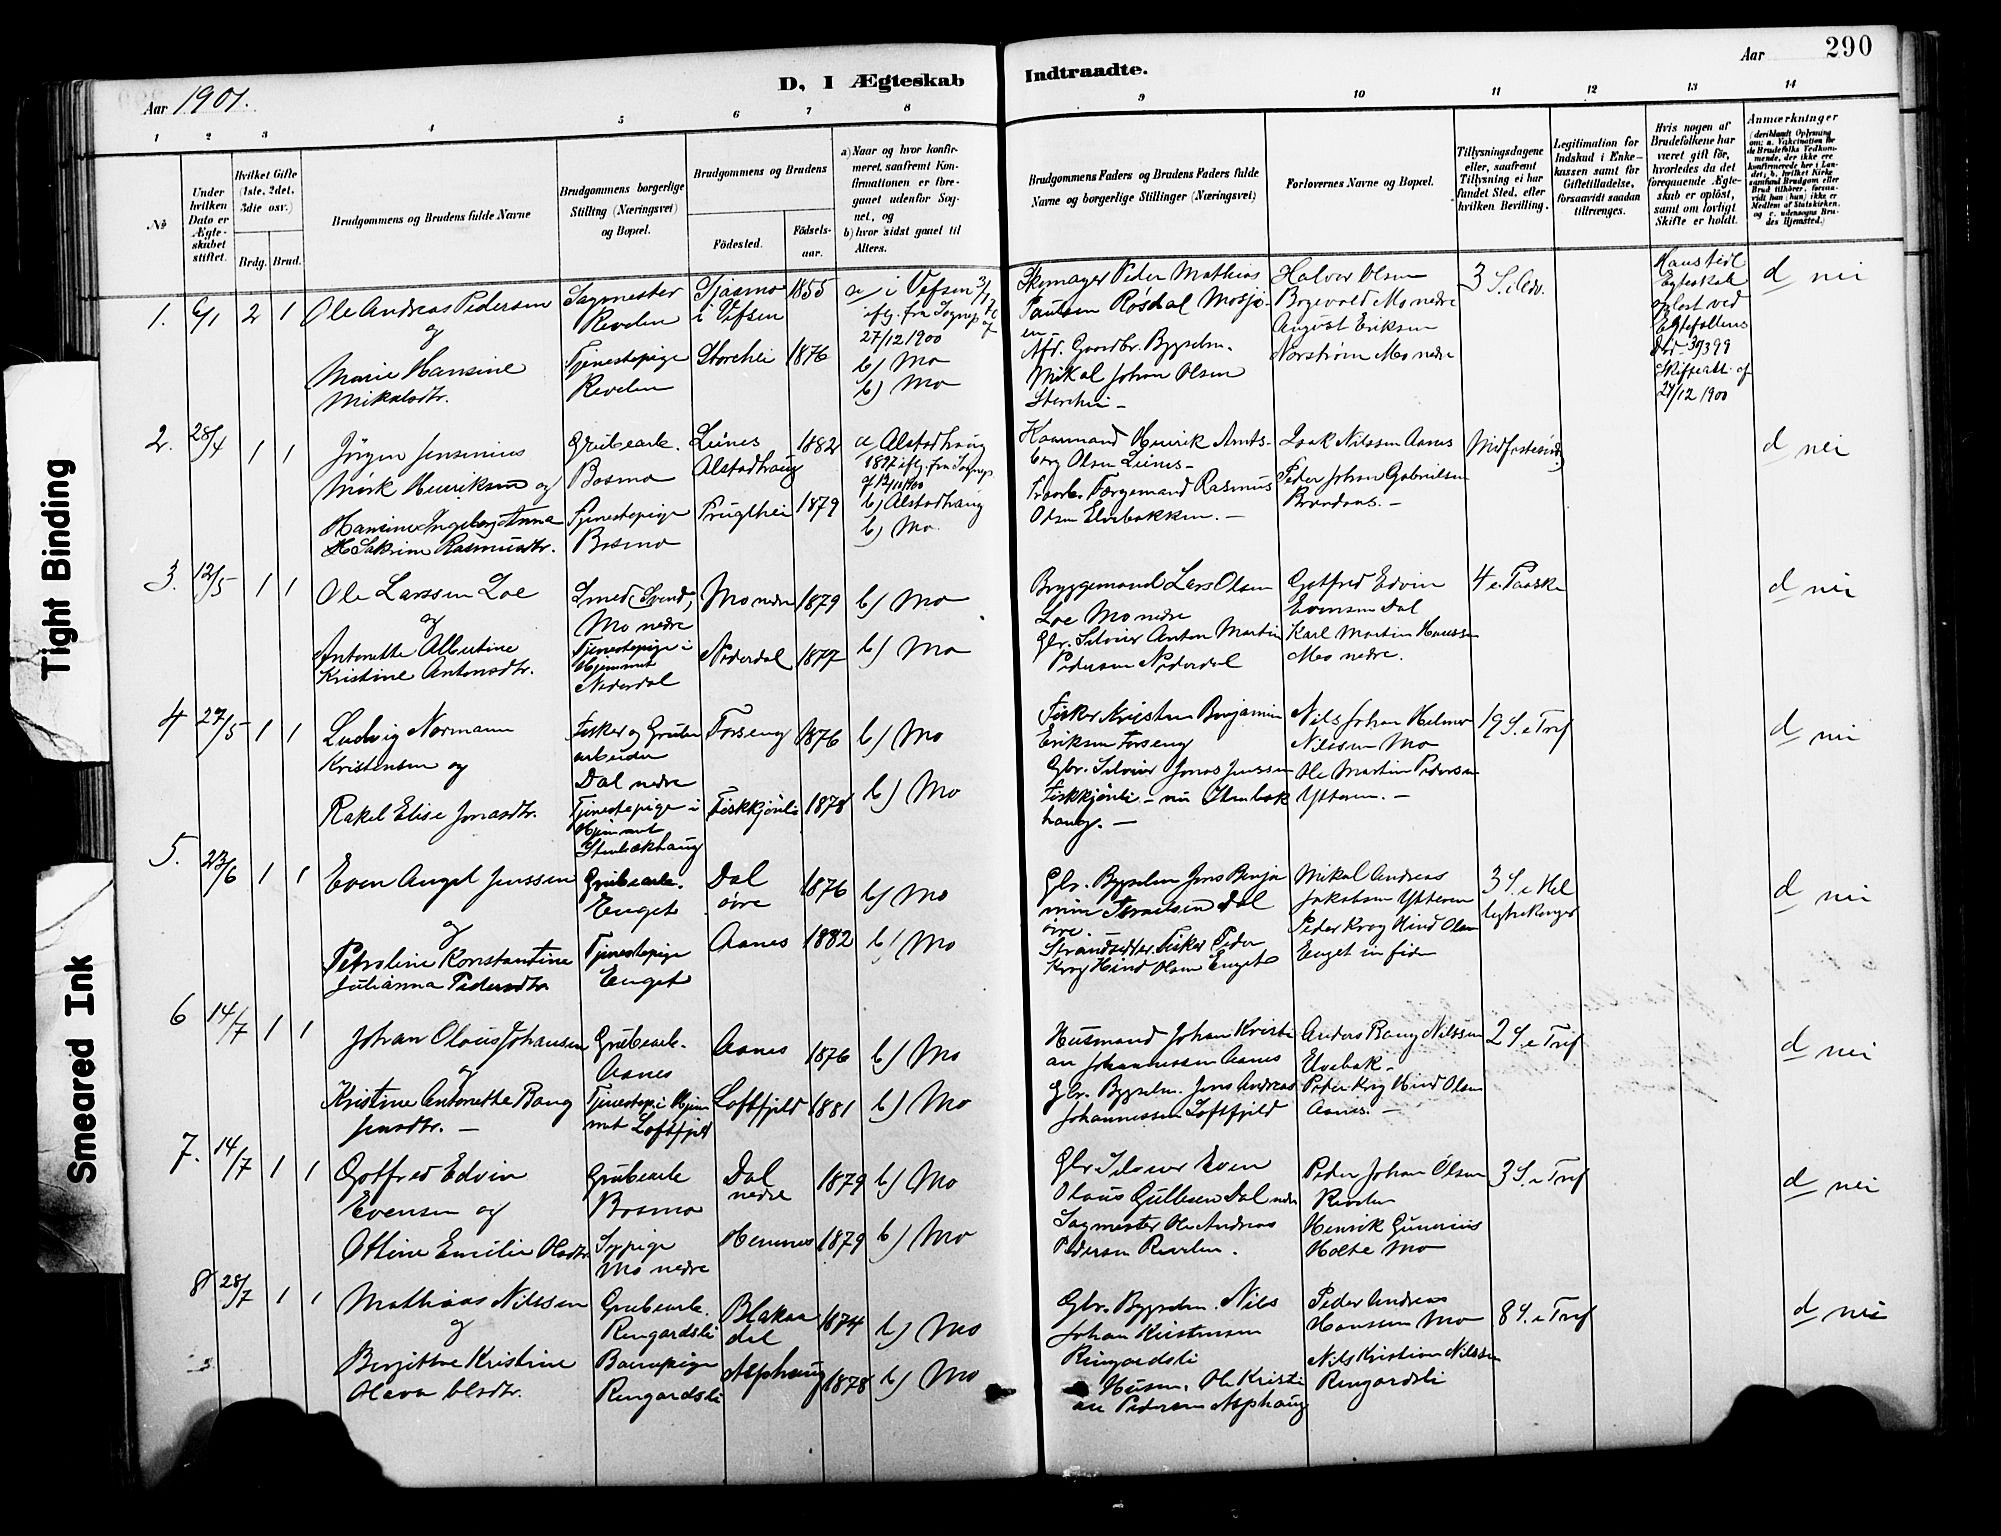 Tight Binding
Smeared Ink
Aar 1901.
D, I Ægteskab
Indtraadte.
Aar
290
1 2 3 4 5 6 7 8 9 10 11 12 13 14
No
Under hvilken Dato er Ægteskabet stiftet.
Hvilket Gifte (1ste, 2det, 3die osv.)
Brdg. Brud.
Brudgommens og Brudens fulde Navne
Brudgommens borgerlige Stilling (Næringsvei) og Bopæl.
Brudgommens og Brudens
Födested.
Födselsaar.
a) Naar og hvor konfirmeret, saafremt Konfirmationen er foregaaet udenfor Sognet, og
b) hvor sidst gaaet til Alters.
Brudgommens Faders og Brudens Faders fulde Navne og borgerlige Stillinger (Næringsvei)
Forlovernes Navne og Bopæl.
Tillysningsdagene eller, saafremt Tillysning ei har fundet Sted, efter hvilken Bevilling.
Legitimation for Indskud i Enkekassen samt for Giftetilladelse, forsaavidt saadan tiltrænges.
Hvis nogen af Brudefolkene har været gift för, hvorledes da det foregaaende Ægteskab er oplöst, samt om lovligt Skifte er holdt.
Anmærkninger
1. 6/1 2 1
Ole Andreas Pedersen
og
Marie Hansine
Mikalsdtr.
Sagmester
Revelen
Tjenestepige
Revelen
i Vefsen 1855
Storehei 1876
a) i Vefsen
27/12 1900
b) Mo
b) Mo
Skomager Peder Mathias
Paulsen Rösdal Mosjöen
Afd. Gaardbr. Bygselm.
Mikal Johan Olsen
Storehei -
Halvor Olsen
Mo nedre
August Eriksen
Norström Mo nedre
Hans förl
Egteskab
oplöst ved
Egtefællens
Död 30/3 99
Skifteatt. af
27/12 1900
d nei
2. 28/4 1 1
Jörgen Jensenius
Mörk Henriksen og
Hansine Ingeborg Anna
Rasmusdtr.
Grubearb.
Bosmo
Tjenestepige
Bosmo
Leines
Alstadhaug
1882
1879
a Alstadhaug
b) Alstadhaug
b) Mo.
Olsen Leines -
Rasmus
Olsen Elvebakken. -
Isak Nilssen Aanes
Peder Johan Gabrielsen
d nei
3. 12/5 1 1
Ole Larssen Loe
og
Antonette Albertine
Kristine Antonsdtr.
Smed Svend,
Mo nedre
Tjenestepige i
Hjemmet
Nederdal
Mo nedre 1879 b) Mo
Nederdal 1877 b) Mo
Bryggemand Lars Olsen
Loe Mo nedre
Gbr. Selveier Anton Martin
Pedersen Nederdal
Gotfred Edvin
Evensen Dal
Karl Martin Hanssen
Mo nedre.
4 e. Paaske
d nei
4 27/5 1 1
Ludvig Normann
Kristensen og
Rakel Elise Jonasdtr.
Fisker og Grube
arbeider
Dal nedre
Tjenestepige i
Hjemmet
Forseng 1876 b) Mo
Fiskkjönli 1878 b) Mo
Fisker Kristen Benjamin
Eriksen Forseng
Gbr. Selveier Jonas Jenssen
Nils Johan Helmer
Nilssen Mo
Ole Martin Pedersen
Ytteren. -
d nei
5. 23/6 1 1
Even Angel Jenssen
og
Petroline Konstantine
Julianna Pedersdtr
Grubearb.
Enget
Tjenestepige
Enget
Dal
övre
Aanes
1876
1882
b) Mo
b) Mo
Gbr. Bygselm. Jens Benja
min Israelsen Dal
övre.
Strandsidder Fisker Peder
Krog Hind Olsen Enget
Mikal Andreas
Jakobsen Ytteren
Peder Krog Hind Olsen
Enget
3 S. e. Hel
ligtrekonger
d nei
6 14/7 1 1
Johan Olaus Johansen
og
Kristine Antonette Bang
Jensdtr. -
Grubearb.
Aanes
Tjenestep. i Hjem
met Loftfjeld
Aanes 1876 b) Mo
Loftfjeld 1881 b) Mo
Husmand Johan Kristi
an Johannessen Aanes
Gbr. Bygselm. Jens Andreas
Johannessen Loftfjeld
Anders Bang Nilssen
Peder Krog Hind Olsen
Aanes. -
2 S. e. Tref
d nei
7. 14/7 1 1
Gotfred Edvin
Evensen og
Ottine Emilie Olsdtr.
Grubearb
Bosmo
Sypige
Mo nedre
Dal
nedre
Hemnes
1879
1879
b) Mo
b) Mo
Gbr Selveier Even
Olaus Gullesen Dal nedre
Sagmester Ole Andreas
Pedersen Revelen.
Peder Johan Olsen
Revelen
Henrik Gunerius
Holte Mo
3 S. e. Tref
d nei
8 28/7 1 1
Mathias Nilssen
og
Bergitte Kristine
Olava Olsdtr.
Grubearb.
Rengardsli
Barnepige
Rengardsli
Blakaa
dal
Asphaug
1874
1878
b) Mo
b) Mo
Gbr. Bygselm. Nils
Johan Kristensen
Rengardsli
Husm. Ole Kristi
an Pedersen Asphaug
Peder Andreas
Hansen Mo
Nils Kristian Nilssen
Rengardsli
8 S. e. Tref
d nei